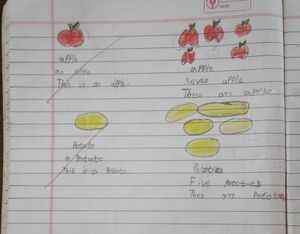 apple
an apple
This is an apple.
apple
seven apple
These are apples
Potato
a Potato
This is a Potato.
Potatoes
Five Potatoes
Thes are Potatoes